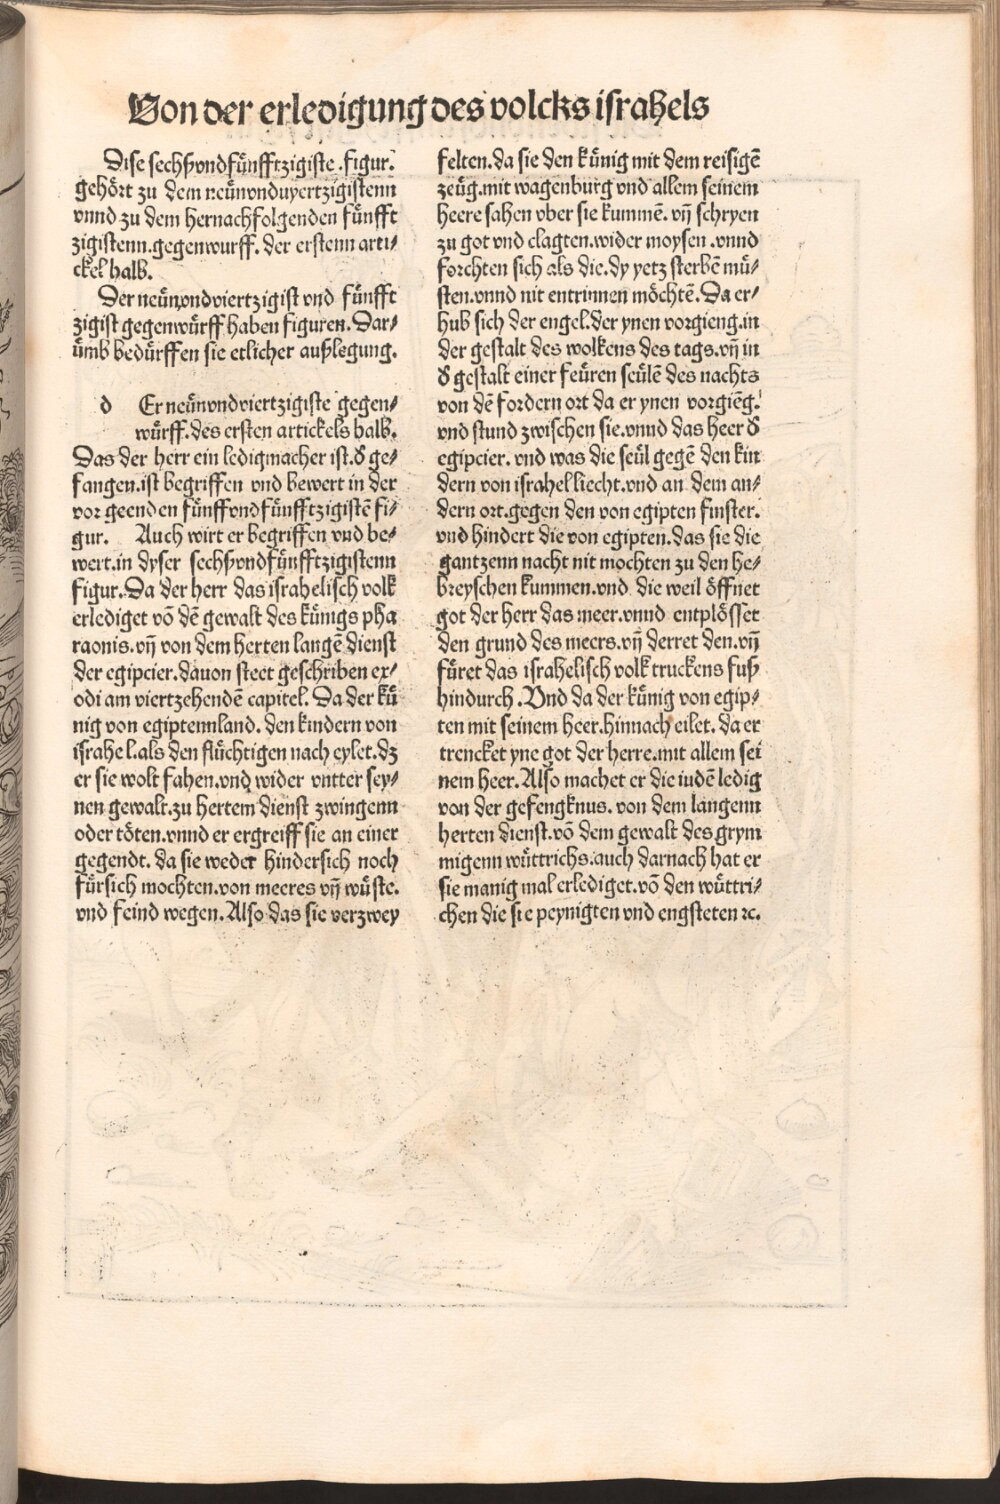 Von der erledigung des volcks israhels
Dise sechßvndfünfftzigiste .figur.
gehört zu dem neünvnduyertzigistenn
vnnd zu dem hernachfolgenden fünfft
zigistenn.gegenwurff. der erstenn arti⸗
ckel halb.
Der neünvndviertzigist vnd fünfft
zigist gegenwürff haben figuren. Dar⸗
ümb bedürffen sie etlicher außlegung.
d Er neünvndviertzigiste gegen⸗
würff. des ersten artickels halb.
Das der herr ein ledigmacher ist.d̕ ge⸗
fangen.ist begriffen vnd bewert in der
vor geenden fünffvndfünfftzigistē fi⸗
gur. Auch wirt er begriffen vnd be⸗
wert.in dyser sechßvndfünfftzigistenn
figur. Da der herr das israhelisch volk
erlediget vō dē gewalt des künigs pha
raonis.vn̄ von dem herten langē dienst
der egipcier.dauon steet geschriben ex⸗
odi am viertzehendē capitel. Da der kü
nig von egiptennland. den kindern von
israhel.als den flüchtigen nach eylet.dz
er sie wolt fahen.vnd wider vntter sey⸗
nen gewalt.zu hertem dienst zwingenn
oder töten.vnnd er ergreiff sie an einer
gegendt. da sie weder hindersich noch
fürsich mochten.von meeres vn̄ wüste.
vnd feind wegen. Also das sie verzwey
felten.da sie den künig mit dem reisigē
zeüg.mit wagenburg vnd allem seinem
heere sahen vber sie kummē. vn̄ schryen
zu got vnd clagten.wider moysen .vnnd
forchten sich als die.dy yetz sterbē mü⸗
sten.vnnd nit entrinnen möchtē. Da er⸗
hub sich der engel.der ynen vorgieng.in
der gestalt des wolkens des tags.vn̄ in
d̕ gestalt einer feüren seülē des nachts
von dē fordern ort da er ynen vorgiēg.
vnd stund zwischen sie.vnnd das heer d̕
egipcier. vnd was die seül gegē den kin
dern von israhel liecht.vnd an dem an⸗
dern ort.gegen den von egipten finster.
vnd hindert die von egipten.das sie die
gantzenn nacht nit mochten zu den he⸗
breyschen kummen.vnd die weil öffnet
got der herr das meer.vnnd entplösset
den grund des meers.vn̄ derret den.vn̄
füret das israhelisch volk truckens fuß
hindurch .Vnd da der künig von egip⸗
ten mit seinem heer.hinnach eilet. da er
trencket yne got der herre.mit allem sei
nem heer. Also machet er die iudē ledig
von der gefengknus. von dem langenn
herten dienst.vō dem gewalt des grym
migenn wüttrichs.auch darnach hat er
sie manig mal erlediget.vō den wüttri⸗
chen die sie peynigten vnd engsteten ꝛc.